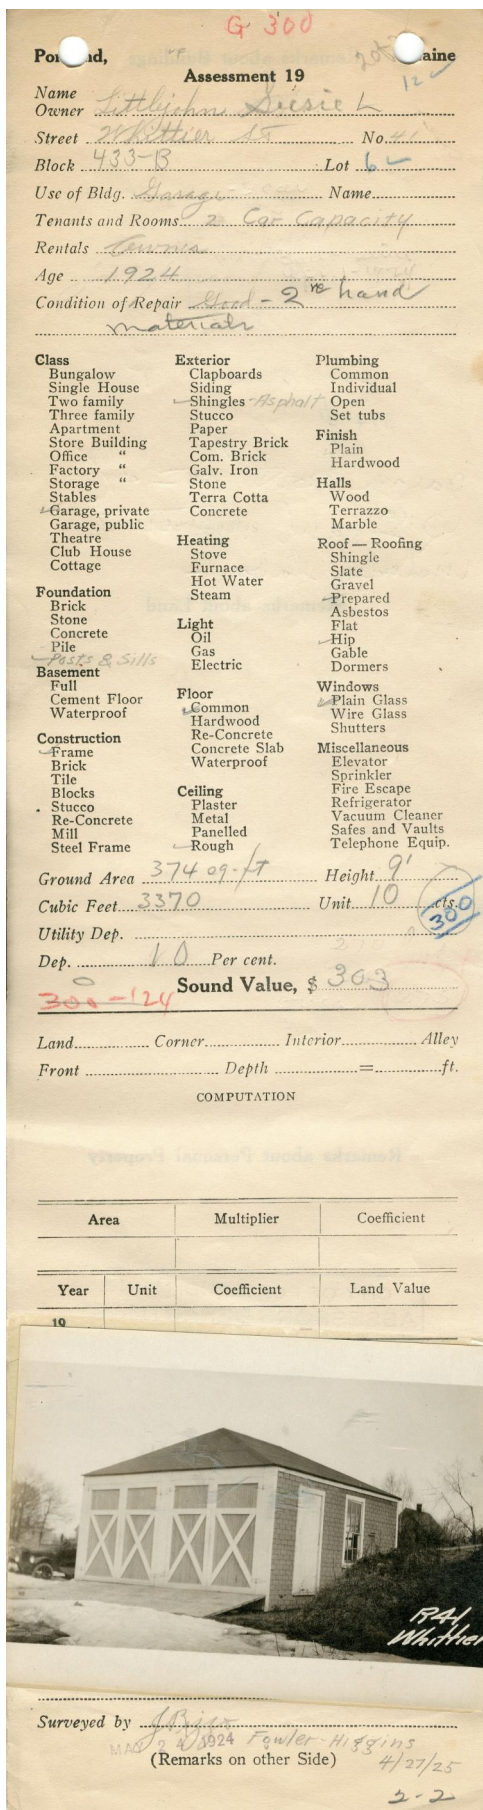 G 300
Portland, Maine
2 of 2
12 ✓
Assessment 19
Name
Owner Littlejohn Susie L
Street Whittier St No. 41
Block 433-B Lot 6 ✓
Use of Bldg. Garage Name
Tenants and Rooms 2 Car Capacity
Rentals Owner
Age 1924
Condition of Repair Good - 2nd hand
materials
Class
Bungalow
Single House
Two family
Three family
Apartment
Store Building
Office "
Factory "
Storage "
Stables
✓ Garage, private
Garage, public
Theatre
Club House
Cottage
Foundation
Brick
Stone
Concrete
Pile
✓ Posts & Sills
Basement
Full
Cement Floor
Waterproof
Construction
✓ Frame
Brick
Tile
Blocks
Stucco
Re-Concrete
Mill
Steel Frame
Exterior
Clapboards
Siding
✓ Shingles - Asphalt
Stucco
Paper
Tapestry Brick
Com. Brick
Galv. Iron
Stone
Terra Cotta
Concrete
Heating
Stove
Furnace
Hot Water
Steam
Light
Oil
Gas
Electric
Floor
✓ Common
Hardwood
Re-Concrete
Concrete Slab
Waterproof
Ceiling
Plaster
Metal
Panelled
✓ Rough
Plumbing
Common
Individual
Open
Set tubs
Finish
Plain
Hardwood
Halls
Wood
Terrazzo
Marble
Roof — Roofing
Shingle
Slate
Gravel
✓ Prepared
Asbestos
Flat
✓ Hip
Gable
Dormers
Windows
✓ Plain Glass
Wire Glass
Shutters
Miscellaneous
Elevator
Sprinkler
Fire Escape
Refrigerator
Vacuum Cleaner
Safes and Vaults
Telephone Equip.
Ground Area 374 sq-ft Height 9'
Cubic Feet 3370 Unit 10 cts.
300
Utility Dep.
Dep. 10 Per cent.
Sound Value, $ 303
300 - 124
Land Corner Interior Alley
Front Depth = ft.
COMPUTATION
Area Multiplier Coefficient
Year Unit Coefficient Land Value
19
R41
Whittier
Surveyed by
MAY 24 1924 Fowler-Higgins
(Remarks on other Side) 4/27/25
2-2